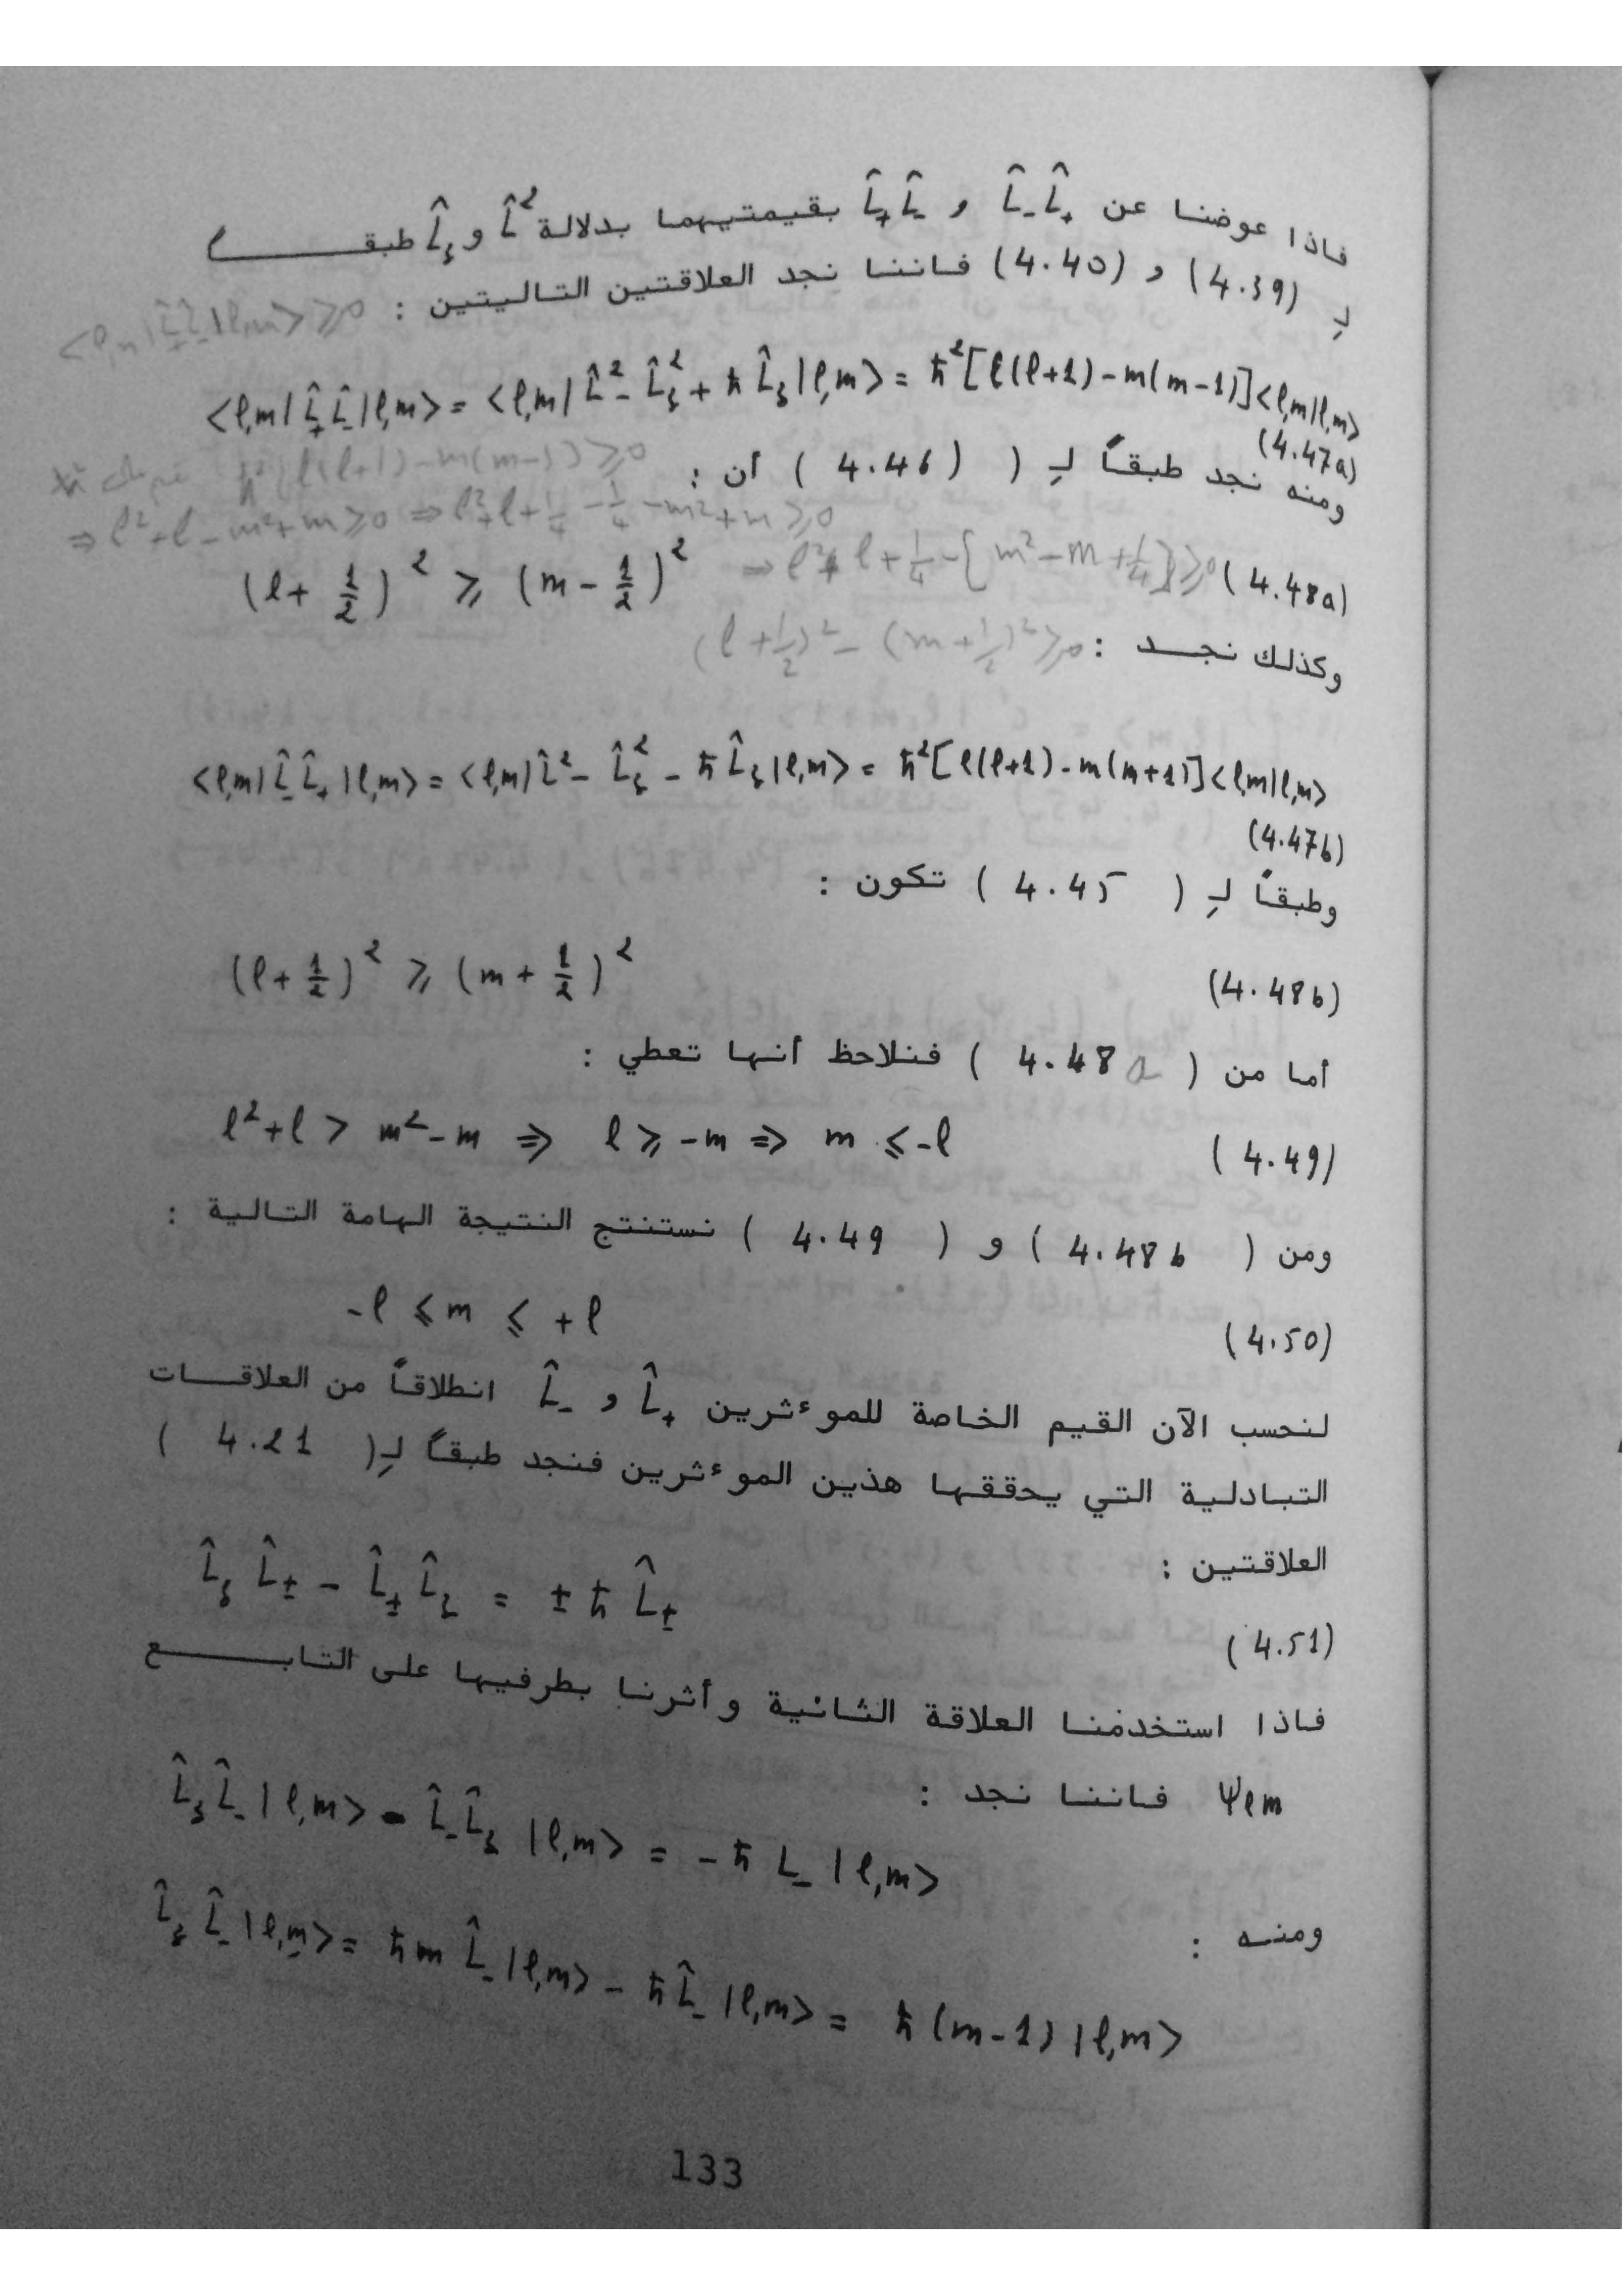 فاذا عوضنا عن L̂₋L̂₊ و L̂₊L̂₋ بقيمتيهما بدلالة L̂² و L̂₃ طبقــــا
لـِ (4.39) و (4.40) فاننا نجد العلاقتين التاليتين : <l,m|L̂₊L̂₋|l,m> ⩾ 0
<l,m|L̂₊L̂₋|l,m> = <l,m|L̂² - L̂₃² + ħ L̂₃|l,m> = ħ²[l(l+1) - m(m-1)]<l,m|l,m>
(4.47a)
ومنه نجد طبقاً لـِ ( 4.46 ) أن : ħ²(l(l+1) - m(m-1)) ⩾ 0
⇒ l² + l - m² + m ⩾ 0 ⇒ l² + l + 1/4 - 1/4 - m² + m ⩾ 0
(l + 1/2)² ⩾ (m - 1/2)² ⇒ l² + l + 1/4 - [m² - m + 1/4] ⩾ 0 (4.48a)
وكذلك نجــد : (l + 1/2)² - (m + 1/2)² ⩾ 0
<l,m|L̂₋L̂₊|l,m> = <l,m|L̂² - L̂₃² - ħ L̂₃|l,m> = ħ²[l(l+1) - m(m+1)]<l,m|l,m>
(4.47b)
وطبقاً لـِ ( 4.45 ) تكون :
(l + 1/2)² ⩾ (m + 1/2)² (4.48b)
أما من ( 4.48a ) فنلاحظ أنها تعطي :
l² + l > m² - m ⇒ l ⩾ -m ⇒ m ⩽ -l (4.49)
ومن ( 4.48b ) و ( 4.49 ) نستنتج النتيجة الهامة التالية :
-l ⩽ m ⩽ +l (4.50)
لنحسب الآن القيم الخاصة للموءثرين L̂₊ و L̂₋ انطلاقاً من العلاقــات
التبادلية التي يحققها هذين الموءثرين فنجد طبقاً لـِ( 4.21 )
العلاقتين :
L̂₃ L̂± - L̂± L̂₃ = ± ħ L̂± (4.51)
فاذا استخدمنا العلاقة الثانية وأثرنا بطرفيها على التابــــع
Ψlm فاننا نجد :
L̂₃L̂₋|l,m> - L̂₋L̂₃|l,m> = -ħ L₋|l,m>
ومنــه :
L̂₃L̂₋|l,m> = ħm L̂₋|l,m> - ħL̂₋|l,m> = ħ(m-1)|l,m>
133